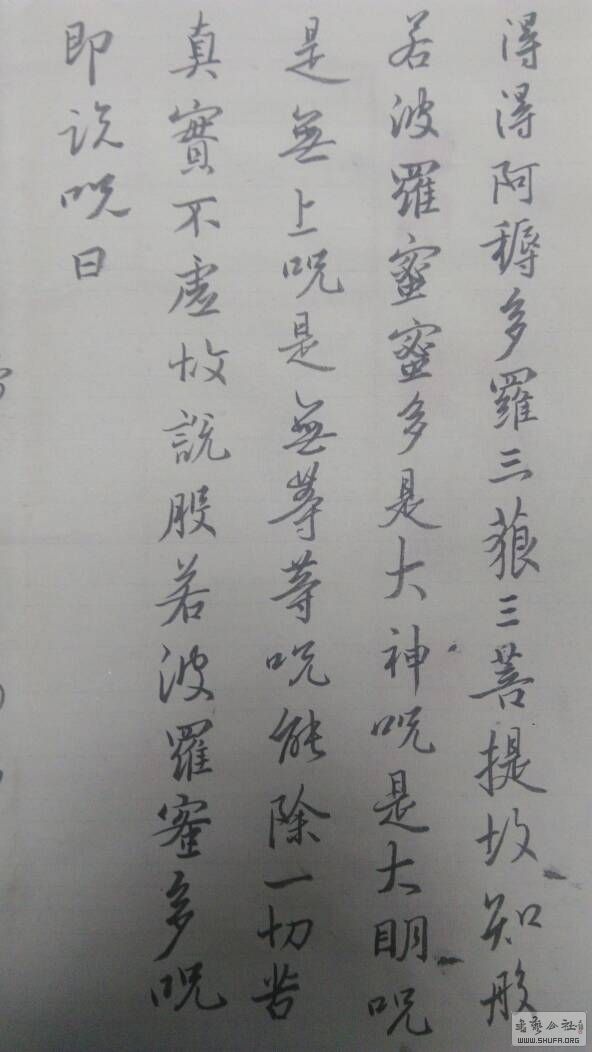 得得阿耨多羅三藐三菩提故知般
若波羅蜜蜜多是大神咒是大明咒
是無上咒是無等等咒能除一切苦
真實不虛故説般若波羅蜜多咒
即说咒曰
书艺公社
WWW.SHUFA.ORG